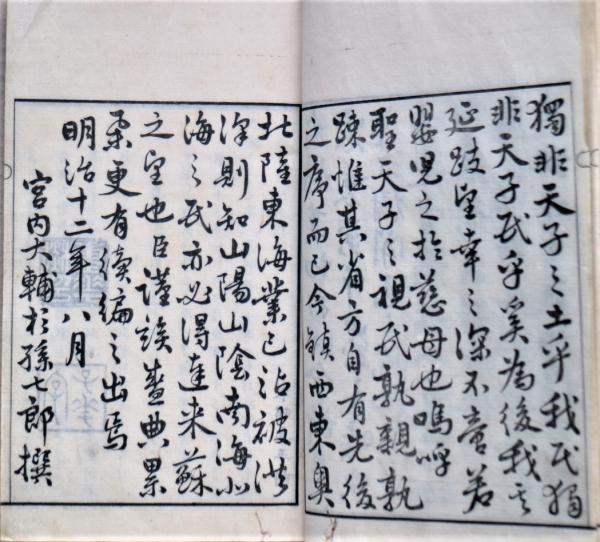 獨非天子之土乎我民獨
非天子民乎奚為後我其
延跂望幸之深不啻若
嬰児之於慈母也嗚呼
聖天子之視民孰親孰
踈惟其省方自有先後
之序而已今鎮西東奥
北陸東海業已沾被洪
澤則知山陽山陰南海北
海之民亦必得達来蘇
之望也臣謹竢盛典累
更有續編之出焉
明治十二年八月
宮内大輔杉孫七郎撰